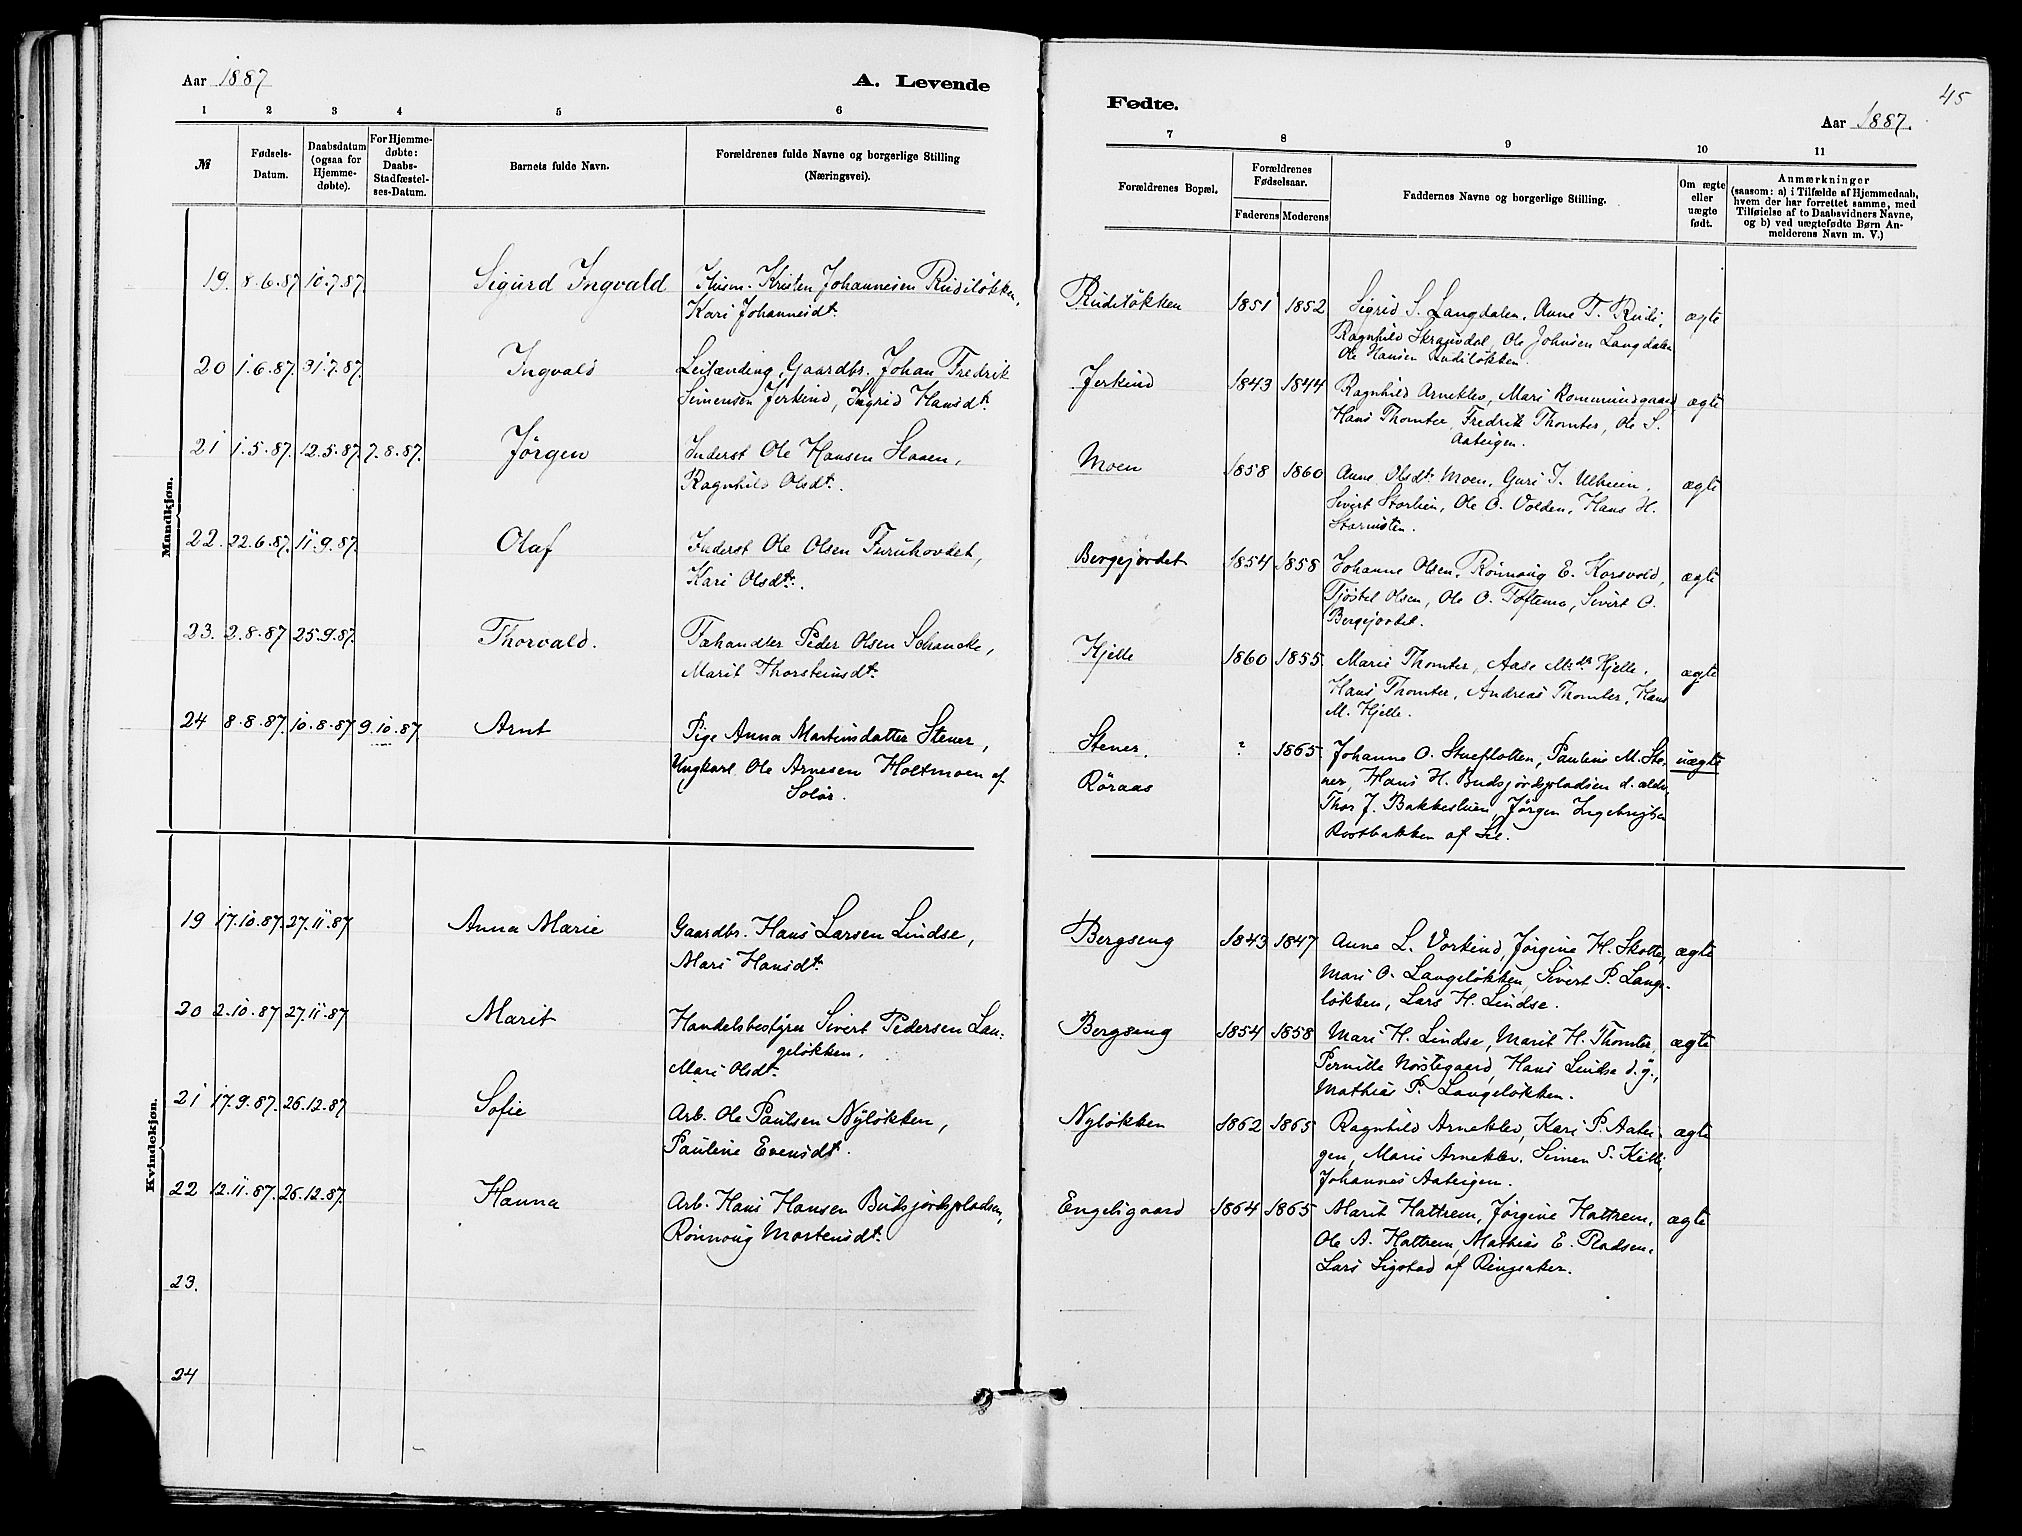 Aar 1887
A. Levende
1 2 3 4 5 6
№
Fødsels-
Datum.
Daabsdatum
(ogsaa for
Hjemme-
døbte).
For Hjemme-
døbte:
Daabs-
Stadfæstel-
ses-Datum.
Barnets fulde Navn.
Forældrenes fulde Navne og borgerlige Stilling
(Næringsvei).
Mandkjøn.
19. 8.6.87. 10.7.87. Sigurd Ingvald Husm. Kristen Johannesen Rudiløkken,
Kari Johannesdt.
20 1.6.87. 31.7.87. Ingvald Leilænding, Gaardbr. Johan Fredrik
Simensen Jerkind, Ingrid Hansdt.
21 1.5.87. 12.5.87. 7.8.87. Jørgen Inderst Ole Hansen Slaaen,
Ragnhild Olsdt.
22. 22.6.87. 11.9.87. Olaf Inderst Ole Olsen Furuhovdet,
Kari Olsdt.
23. 2.8.87. 25.9.87. Thorvald. Peder Olsen Schancke,
Marit Thorsteinsdt.
24 8.8.87. 10.8.87 9.10.87. Arnt Pige Anna Martinsdatter Stener,
Ungkarl Ole Arnesen Holtmoen af
Solør.
Kvindekjøn.
19 17.10.87. 27.11.87 Anna Marie Gaardbr. Hans Larsen Lindse,
Mari Hansdt.
20 2.10.87 27.11.87 Marit Handelsbestyrer Sivert Pedersen Lan-
geløkken,
Mari Olsdt.
21 17.9.87. 26.12.87 Sofie Arb. Ole Paulsen Nyløkken,
Pauline Evensdt.
22 12.11.87. 26.12.87. Hanna Arb. Hans Hansen Budsjordspladsen,
Rønnoug Mortensdt.
23.
24
45
Fødte.
Aar 1887.
7 8 9 10 11
Forældrenes Bopæl.
Forældrenes
Fødselsaar.
Faderens Moderens
Faddernes Navne og borgerlige Stilling.
Om ægte
eller
uægte
født.
Anmærkninger
(saasom: a) i Tilfælde af Hjemmedaab,
hvem der har forrettet samme, med
Tilføielse af to Daabsvidners Navne,
og b) ved uægtefødte Børn An-
melderens Navn m. V.)
Rudiløkken 1851 1852 Sigrid S. Langdalen, Anne T. Rudi, ægte
Ragnhild Skramdal, Ole Johnsen Langdalen
Ole Hansen Rudiløkken.
Jerkind 1843 1844 Ragnhild Arneklev, Mari Rommundgaard, ægte
Hans Thomter, Fredrik Thomter, Ole S.
Aateigen.
Moen 1858 1860 Anne Olsdt. Moen, Guri I. Ulheim, ægte
Sivert Storlien, Ole O. Volden, Hans H.
Bergejordet 1854 1858 Johanne Olsen, Rønnoug E. Korsvold, ægte
Tjøstel Olsen, Ole O. Toftemo, Sivert O.
Bergejordet.
Hjelle 1860 1855. Marie Thomter, Aase M.dt. Hjelle, ægte
Hans Thomter, Andreas Thomter, Hans
M. Hjelle.
Stener. ? 1865. Johanne O. Stueflotten, Pauline M. Ste- uægte
Røraas ner, Hans H. Budsjordspladsen d. ældre,
Thor J. Bakkeslien, Jørgen Ingebrigtsen
Rostbakken af Sel.
Bergseng 1843 1847 Anne L. Vorkind, Jørgine H. Skotte, ægte
Mari O. Langeløkken, Sivert P. Lange-
løkken, Lars H. Lindse.
Bergseng 1854 1858 Mari H. Lindse, Marit H. Thomter, ægte
Pernille Norstegaard, Hans Lindse d. y.,
Mathias P. Langeløkken.
Nyløkken 1862 1865 Ragnhild Arneklev, Kari P. Aatei- ægte
gen, Marie Arneklev, Simen S.
Johannes Aateigen.
Engelsgaard 1864 1865 Marit Hattrem, Jørgine Hattrem, ægte
Ole A. Hattrem, Mathias E. Rudsen,
Lars Sigstad af Ringsaker.